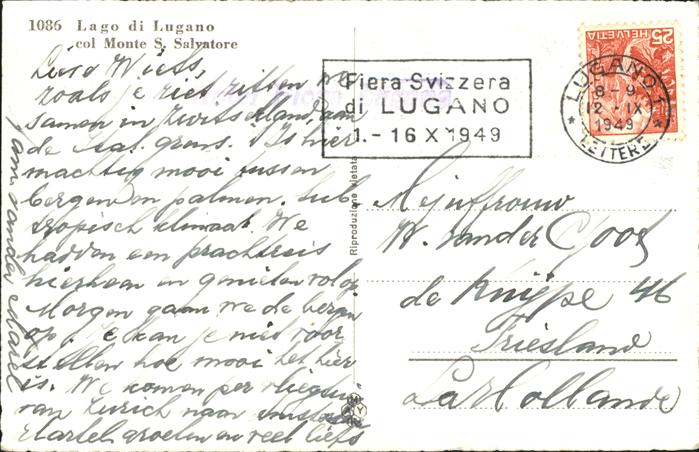 1086 Lago di Lugano
col Monte S. Salvatore
Fiera Svizzera
di LUGANO
1.-16 X 1949
HELVETIA 25
LUGANO 1
8-9
12.IX
1949
LETTERE
Riproduzione vietata
Lieve Wiets,
zoals je ziet zitten we
samen in Zwitserland, aan
de Ital. grens. 't Is hier
machtig mooi tussen
bergen en palmen. Sub
tropisch klimaat. We
hadden een prachtreis
hierheen en genieten volop
Morgen gaan we de bergen
op. Je kan je niet voor
stellen hoe mooi het hier
is. We komen per vliegtuig
van Zurich naar
Hartel. groeten en veel liefs
van
Mejuffrouw
W. van der Goot
de Knijpe 46
Friesland
La Hollande